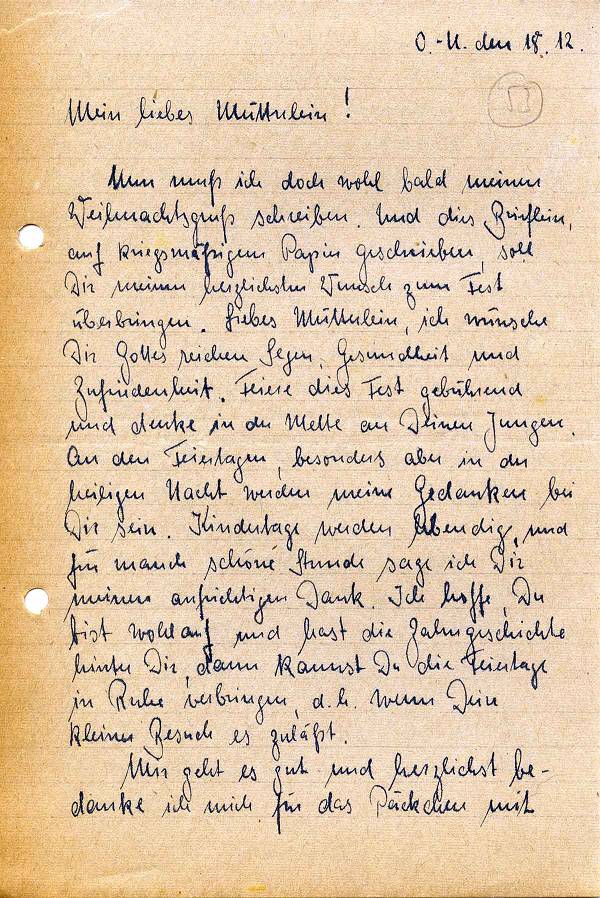 O.-U. den 18.12.
Mein liebes Mütterlein!
Nun muß ich doch wohl bald meinen
Weihnachtsgruß schreiben. Und dies Brieflein,
auf kriegsmäßigem Papier geschrieben, soll
Dir meinen herzlichsten Wunsch zum Fest
überbringen. Liebes Mütterlein, ich wünsche
Dir Gottes reichen Segen, Gesundheit und
Zufriedenheit. Feiere dies Fest gebührend
und denke in der Mette an Deinen Jungen.
An den Feiertagen, besonders aber in der
heiligen Nacht werden meine Gedanken bei
Dir sein. Kindertage werden lebendig, und
für manch schöne Stunde sage ich Dir
meinen aufrichtigen Dank. Ich hoffe, Du
bist wohlauf und hast die Zahngeschichte
hinter Dir, dann kannst Du die Feiertage
in Ruhe verbringen, d.h. wenn Dein
kleiner Besuch es zuläßt.
Mir geht es gut und herzlichst be-
danke ich mich für das Päckchen mit